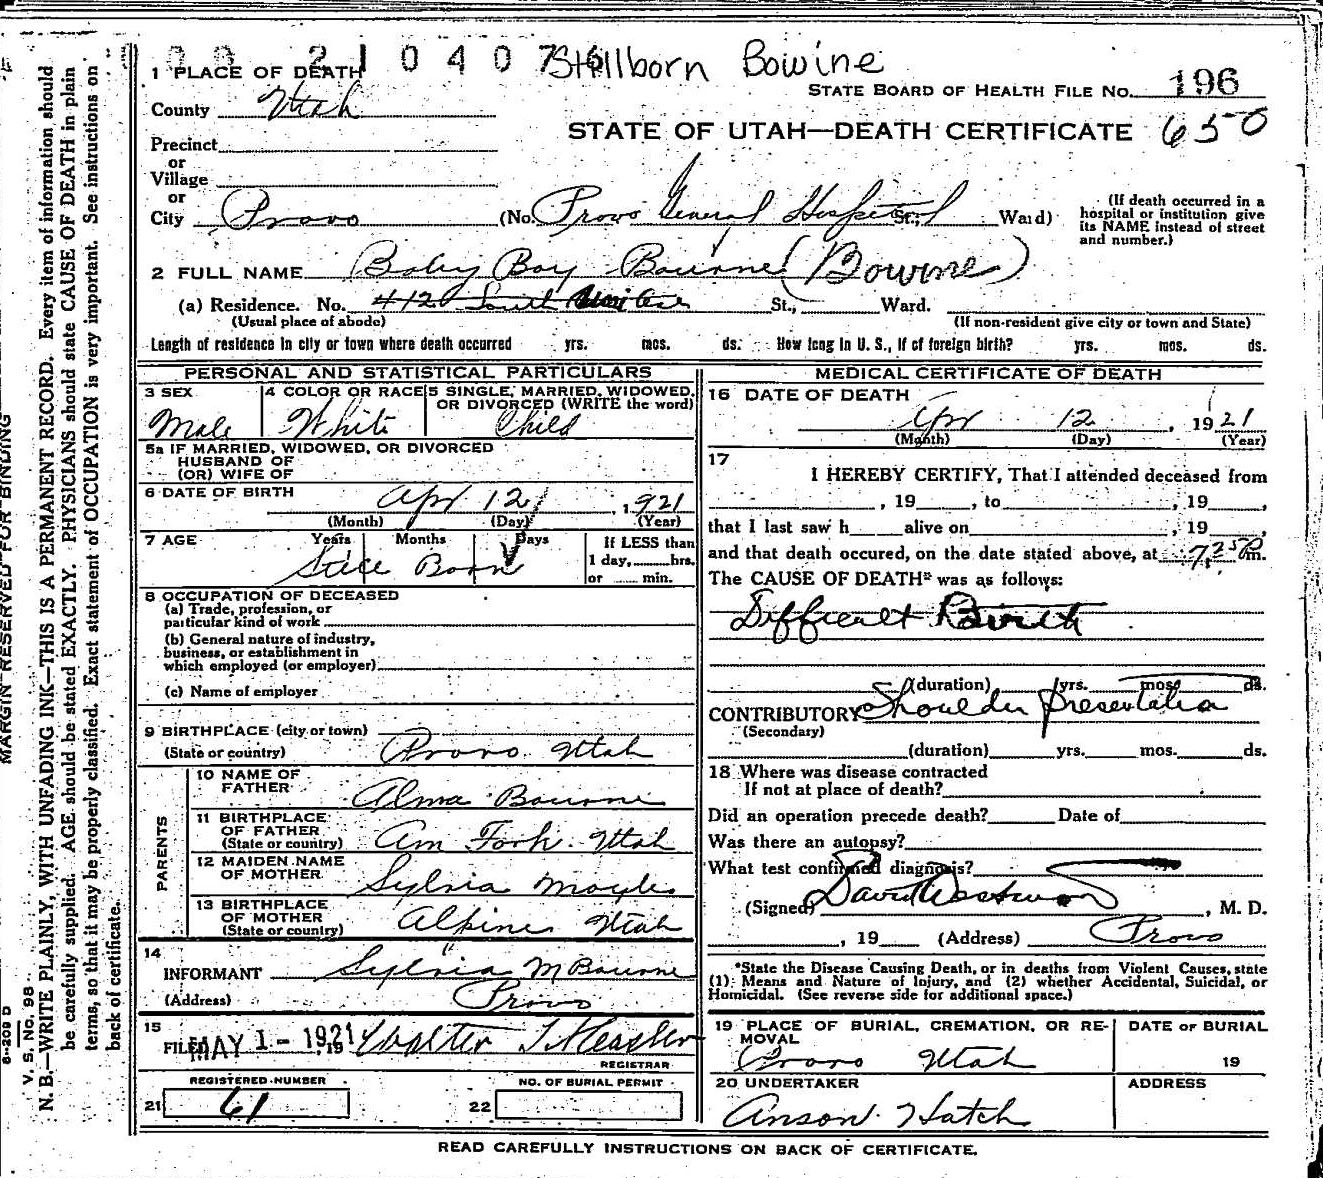 00 21040 7 Stillborn Bowine
1 PLACE OF DEATH
STATE BOARD OF HEALTH FILE No. 196
County Utah
STATE OF UTAH—DEATH CERTIFICATE 650
Precinct
or
Village
or
City Provo (No. Provo General Hospital St., Ward)
(If death occurred in a hospital or institution give its NAME instead of street and number.)
2 FULL NAME Baby Boy Bourne (Bowine)
(a) Residence. No. 412 South St., Ward.
(Usual place of abode) (If non-resident give city or town and State)
Length of residence in city or town where death occurred yrs. mos. ds. How long in U. S., if of foreign birth? yrs. mos. ds.
PERSONAL AND STATISTICAL PARTICULARS
3 SEX
Male
4 COLOR OR RACE
White
5 SINGLE, MARRIED, WIDOWED, OR DIVORCED (WRITE the word)
Child
5a IF MARRIED, WIDOWED, OR DIVORCED
HUSBAND OF
(OR) WIFE OF
6 DATE OF BIRTH
Apr 12, 1921
(Month) (Day) (Year)
7 AGE Years Months Days If LESS than
1 day, hrs.
or min.
Still Born
8 OCCUPATION OF DECEASED
(a) Trade, profession, or
particular kind of work
(b) General nature of industry,
business, or establishment in
which employed (or employer)
(c) Name of employer
9 BIRTHPLACE (city or town)
(State or country) Provo Utah
PARENTS
10 NAME OF
FATHER Alma Bourne
11 BIRTHPLACE
OF FATHER
(State or country) Am Fork. Utah
12 MAIDEN NAME
OF MOTHER Sylvia Moyle
13 BIRTHPLACE
OF MOTHER
(State or country) Alpine Utah
14
INFORMANT Sylvia M Bourne
(Address) Provo
15
FILED MAY 1 - 1921, 19 Walter T Hasler
REGISTRAR
REGISTERED NUMBER NO. OF BURIAL PERMIT
21 61 22
MEDICAL CERTIFICATE OF DEATH
16 DATE OF DEATH
Apr 12, 1921
(Month) (Day) (Year)
17
I HEREBY CERTIFY, That I attended deceased from
, 19 , to , 19 ,
that I last saw h alive on , 19 ,
and that death occured, on the date stated above, at 7.25 P.m.
The CAUSE OF DEATH* was as follows:
Difficult Birth
(duration) yrs. mos. ds.
CONTRIBUTORY Shoulder presentation
(Secondary)
(duration) yrs. mos. ds.
18 Where was disease contracted
If not at place of death?
Did an operation precede death? Date of
Was there an autopsy?
What test confirmed diagnosis?
(Signed) David Westwood, M. D.
, 19 (Address) Provo
*State the Disease Causing Death, or in deaths from Violent Causes, state
(1) Means and Nature of Injury, and (2) whether Accidental, Suicidal, or
Homicidal. (See reverse side for additional space.)
19 PLACE OF BURIAL, CREMATION, OR RE-
MOVAL
Provo Utah
DATE OF BURIAL
19
20 UNDERTAKER
Anson Hatch
ADDRESS
READ CAREFULLY INSTRUCTIONS ON BACK OF CERTIFICATE.
MARGIN RESERVED FOR BINDING
6-209 D
V. S. No. 98
N. B.—WRITE PLAINLY, WITH UNFADING INK—THIS IS A PERMANENT RECORD. Every item of information should
be carefully supplied. AGE should be stated EXACTLY. PHYSICIANS should state CAUSE OF DEATH in plain
terms, so that it may be properly classified. Exact statement of OCCUPATION is very important. See instructions on
back of certificate.